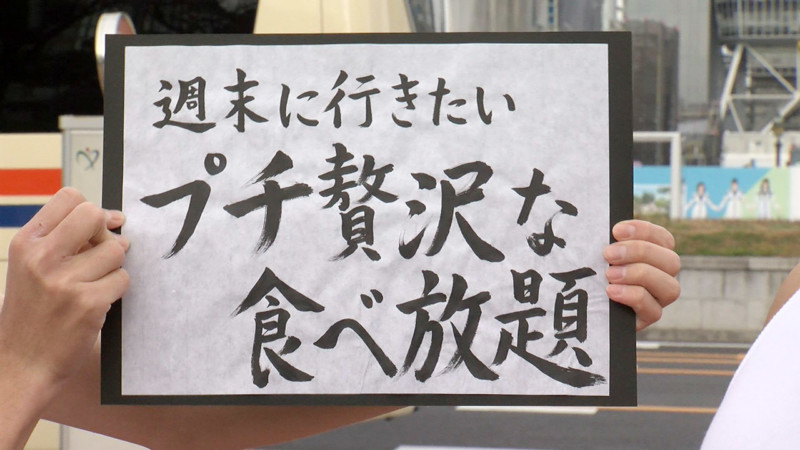 週末に行きたい
プチ贅沢な
食べ放題